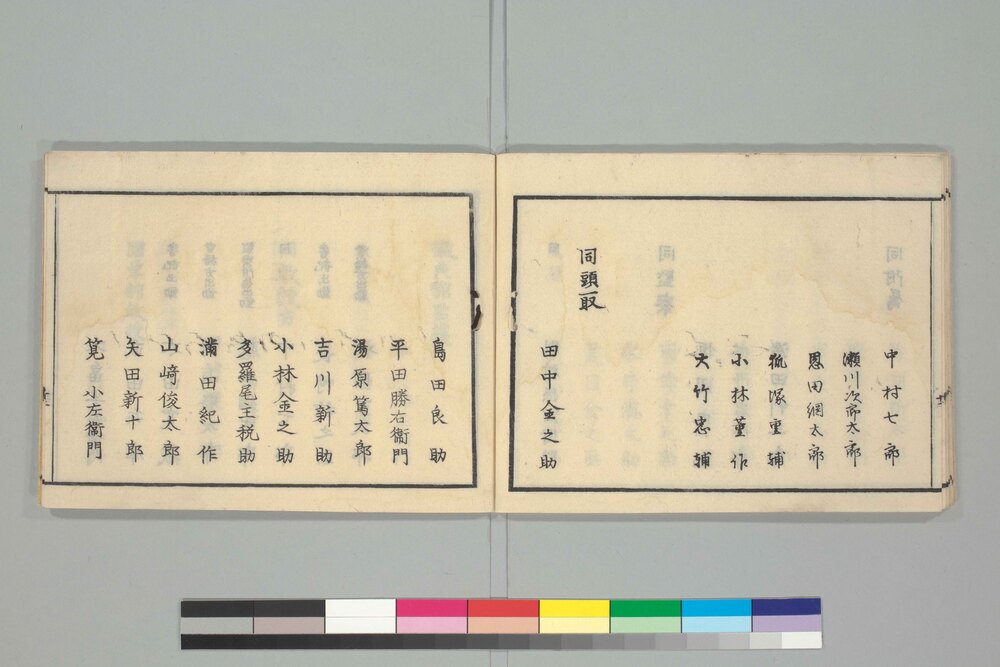 中村七郎
瀬川次郎太郎
恩田綱太郎
狐塚里輔
小林董作
大竹忠輔
同頭取
田中金之助
島田良助
平田勝右衞門
湯原篤太郎
吉川新助
小林金之助
多羅尾主税助
満田紀作
山﨑俊太郎
矢田新十郎
筧小左衞門